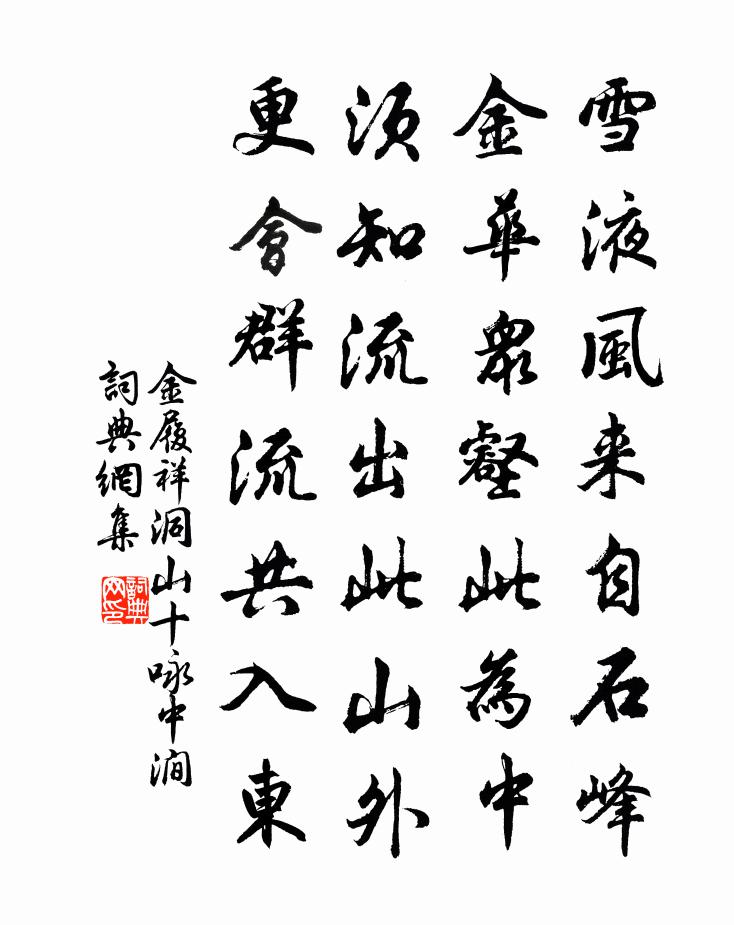 雪液風来自石峰
金華衆壑此為中
須知流出此山外
更會群流共入東
金履祥洞山十咏中澗
詞典網集
詞典網印